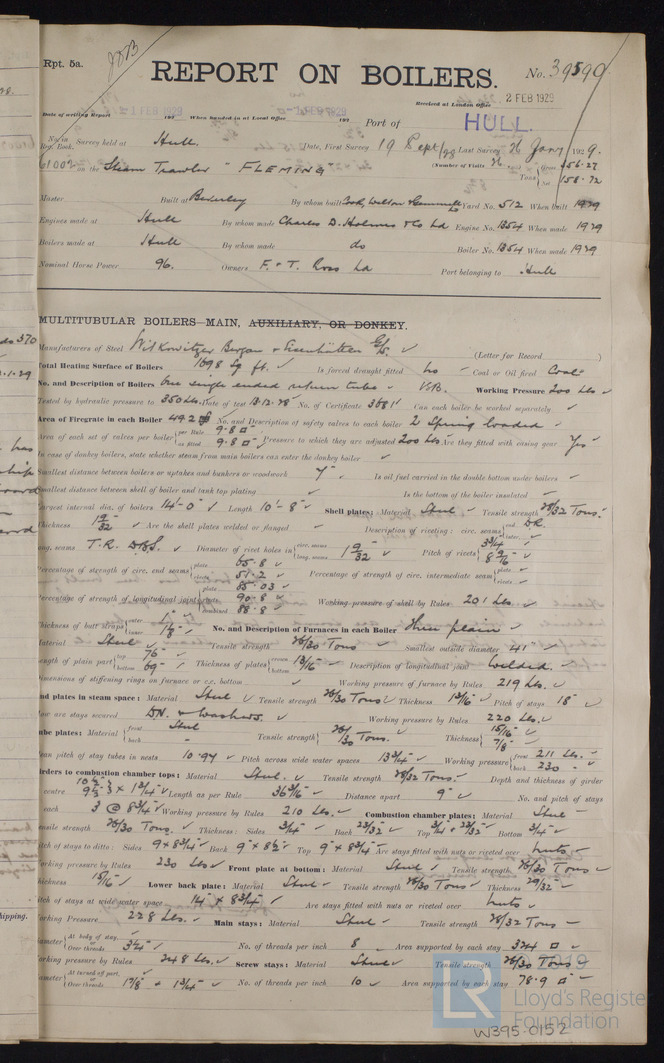 Rpt. 5a.
REPORT ON BOILERS.
No. 39590
Received at London Office 2 FEB 1929
Date of writing Report 1 FEB 1929 192 When handed in at Local Office 192 Port of HULL.
No. in Reg. Book. Survey held at Hull. Date, First Survey 19 Sept/28 Last Survey 26 Jany 1929.
61002 on the Steam Trawler "FLEMING" (Number of Visits 76) Gross 356.27
Tons Net 158.72
Master Built at Beverley By whom built Cook, Welton & Gemmell Ld Yard No. 512 When built 1929
Engines made at Hull By whom made Charles D. Holmes & Co Ld Engine No. 1354 When made 1929
Boilers made at Hull By whom made do Boiler No. 1354 When made 1929
Nominal Horse Power 96. Owners F. & T. Ross Ld Port belonging to Hull
MULTITUBULAR BOILERS—MAIN, AUXILIARY, OR DONKEY.
Manufacturers of Steel Witkowitzer Bergbau & Eisenhütten (Letter for Record )
Total Heating Surface of Boilers 1698 Sq ft. Is forced draught fitted no Coal or Oil fired Coal
No. and Description of Boilers One single ended return tube Working Pressure 200 Lbs
Tested by hydraulic pressure to 350 Lbs. Date of test 13.12.28 No. of Certificate 3881 Can each boiler be worked separately
Area of Firegrate in each Boiler 49.2 No. and Description of safety valves to each boiler 2 Spring loaded
Area of each set of valves per boiler per Rule 9.8 as fitted 9.8 Pressure to which they are adjusted 200 Lbs Are they fitted with easing gear Yes
In case of donkey boilers, state whether steam from main boilers can enter the donkey boiler
Smallest distance between boilers or uptakes and bunkers or woodwork Is oil fuel carried in the double bottom under boilers
Smallest distance between shell of boiler and tank top plating Is the bottom of the boiler insulated
Largest internal dia. of boilers 14'-0" Length 10'-8" Shell plates: Material Steel Tensile strength 28/32 Tons.
Thickness 1 9/32 Are the shell plates welded or flanged Description of riveting: circ. seams end DR. inter.
long. seams T.R. D.B.S. Diameter of rivet holes in circ. seams long. seams 1 9/32 Pitch of rivets 3 3/4 8 9/16
Percentage of strength of circ. end seams plate 65.8 rivets 51.2 Percentage of strength of circ. intermediate seam plate rivets
Percentage of strength of longitudinal joint plate 85.03 rivets 90.8 combined 88.8 Working pressure of shell by Rules 201 Lbs.
Thickness of butt straps outer 1" inner 1 1/8 No. and Description of Furnaces in each Boiler Three plain
Material Steel Tensile strength 26/30 Tons Smallest outside diameter 41"
Length of plain part top 76" bottom 69" Thickness of plates crown bottom 13/16 Description of longitudinal joint Welded.
Dimensions of stiffening rings on furnace or c.c. bottom Working pressure of furnace by Rules 219 Lbs.
End plates in steam space: Material Steel Tensile strength 26/30 Tons Thickness 1 3/16 Pitch of stays 18"
How are stays secured D.N. & Washers. Working pressure by Rules 220 Lbs.
Tube plates: Material front back Steel Tensile strength 26/30 Tons. Thickness 15/16 7/8
Mean pitch of stay tubes in nests 10.97 Pitch across wide water spaces 13 3/4 Working pressure front 211 Lbs. back 230
Girders to combustion chamber tops: Material Steel. Tensile strength 28/32 Tons. Depth and thickness of girder
at centre Length as per Rule 36 3/16 Distance apart 9" No. and pitch of stays
in each 3 @ 8 3/4 Working pressure by Rules 210 Lbs. Combustion chamber plates: Material Steel
Tensile strength 26/30 Tons. Thickness: Sides 3/4 Back 23/32 Top 3/4 & 23/32 Bottom 3/4
Pitch of stays to ditto: Sides 9 x 8 3/4 Back 9" x 8 1/2 Top 9" x 8 3/4 Are stays fitted with nuts or riveted over nuts
Working pressure by Rules 230 Lbs Front plate at bottom: Material Steel Tensile strength 26/30 Tons
Thickness 15/16 Lower back plate: Material Steel Tensile strength 26/30 Tons Thickness 29/32
Pitch of stays at wide water space 14 x 8 3/4 Are stays fitted with nuts or riveted over nuts
Working Pressure 228 Lbs. Main stays: Material Steel Tensile strength 28/32 Tons
Diameter At body of stay, or Over threads 3 1/4 No. of threads per inch 8 Area supported by each stay 324
Working pressure by Rules 248 Lbs. Screw stays: Material Steel Tensile strength 26/30 Tons
Diameter At turned off part, or Over threads 1 7/8 & 1 3/4 No. of threads per inch 10 Area supported by each stay 78.9
2019
LR
Lloyd's Register
Foundation
W395-0152